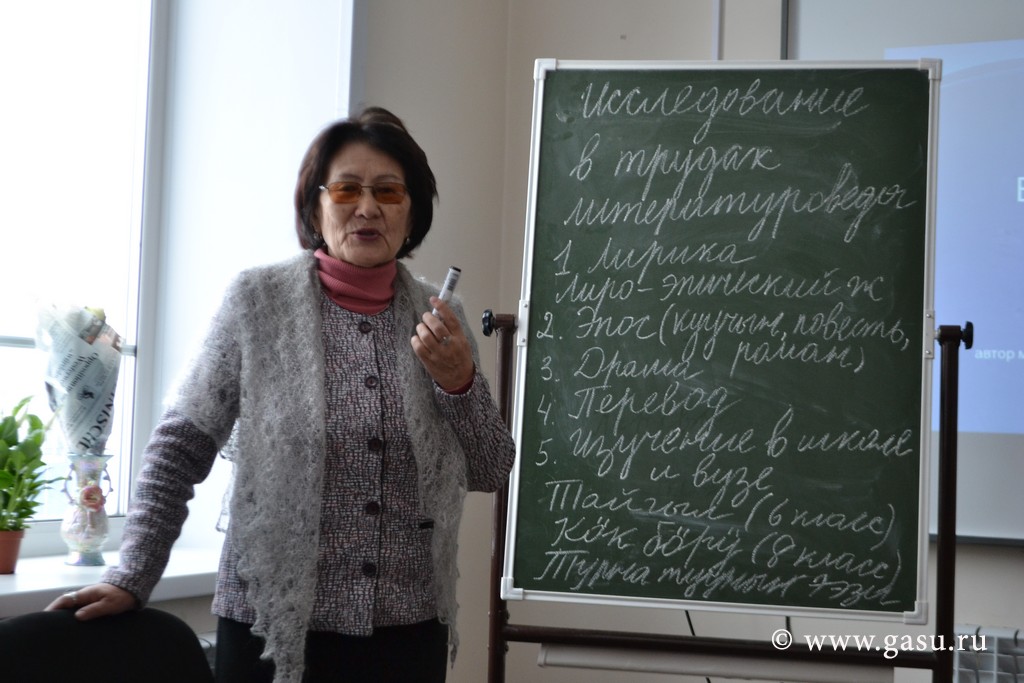 Исследование
в трудах
литературоведы
1 Лирика
Лиро-эпический ж
2. Эпос (куучын, повесть,
роман)
3. Драма
4. Перевод
5. Изучение в школе
и вузе
Тайгыл (6 класс)
Кӧк бӧрӱ (8 класс)
автор м
© www.gasu.ru